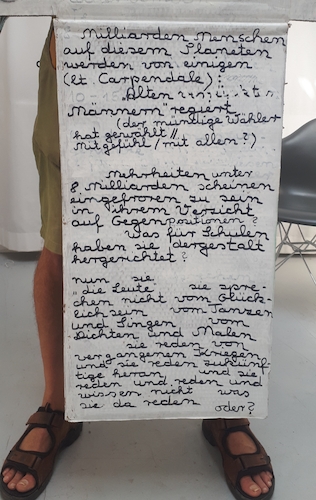 Milliarden Menschen
auf diesem Planeten
werden von einigen
(lt Carpendale):
„Alten
Männern" regiert
(der mündige Wähler
hat gewählt //
mit gefühl / mit allen?)
Mehrheiten unter
8 Milliarden scheinen
eingefroren zu sein
in ihrem Verzicht
auf Gegenpositionen?
Was für Schulen
haben sie dergestalt
hergerichtet?
nun sie
"die Leute" sie spre-
chen nicht vom Glück-
lichsein vom Tanzen
und Singen vom
Dichten und Malen
sie reden von
vergangenen Kriegen
und sie reden zukünf-
tige heran und sie
reden und reden und
wissen nicht was
sie da reden oder?